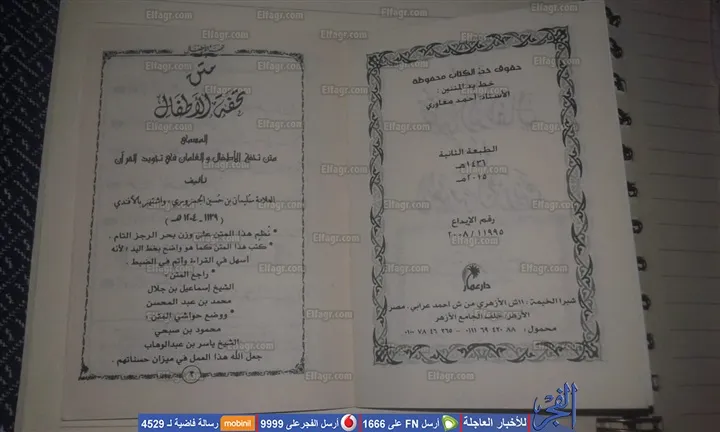 حقوق هذا الكتاب محفوظة
خط يد المتنين:
الأستاذ: أحمد مغاوري
الطبعة الثانية
١٤٣٦هـ
٢٠١٥مـ
رقم الإيداع
٢٠٠٨ / ١١٩٩٥
دار عمار
شبرا الخيمة: ١١ش الأزهري من ش أحمد عرابي. مصر
الأزهر: خلف الجامع الأزهر
محمول: ٨٨ ٤٢٠ ٦٩ ٠١١١ - ٢٦٥ ٤٦ ٧٨ ٠١٠٠
متن
تحفة الأطفال
المسمى
متن تحفة الأطفال والغلمان في تجويد القرآن
تأليف
العلامة سليمان بن حسين الجمزوري، واشتهر بالأفندي
* نُظِم هذا المتن على وزن بحر الرجز التام.
* كتب هذا المتن كما هو واضح بخط اليد؛ لأنه
أسهل في القراءة وأتم في الضبط.
* راجع المتن:
الشيخ إسماعيل بن جلال
محمد بن عبد المحسن
* ووضع حواشي المتن:
محمود بن صبحي
الشيخ ياسر بن عبدالوهاب
جعل الله هذا العمل في ميزان حسناتهم.
٣
Elfagr.com
الفجر
للأخبار العاجلة
أرسل FN على 1666
أرسل الفجر على 9999
mobinil
رسالة فاضية لـ 4529